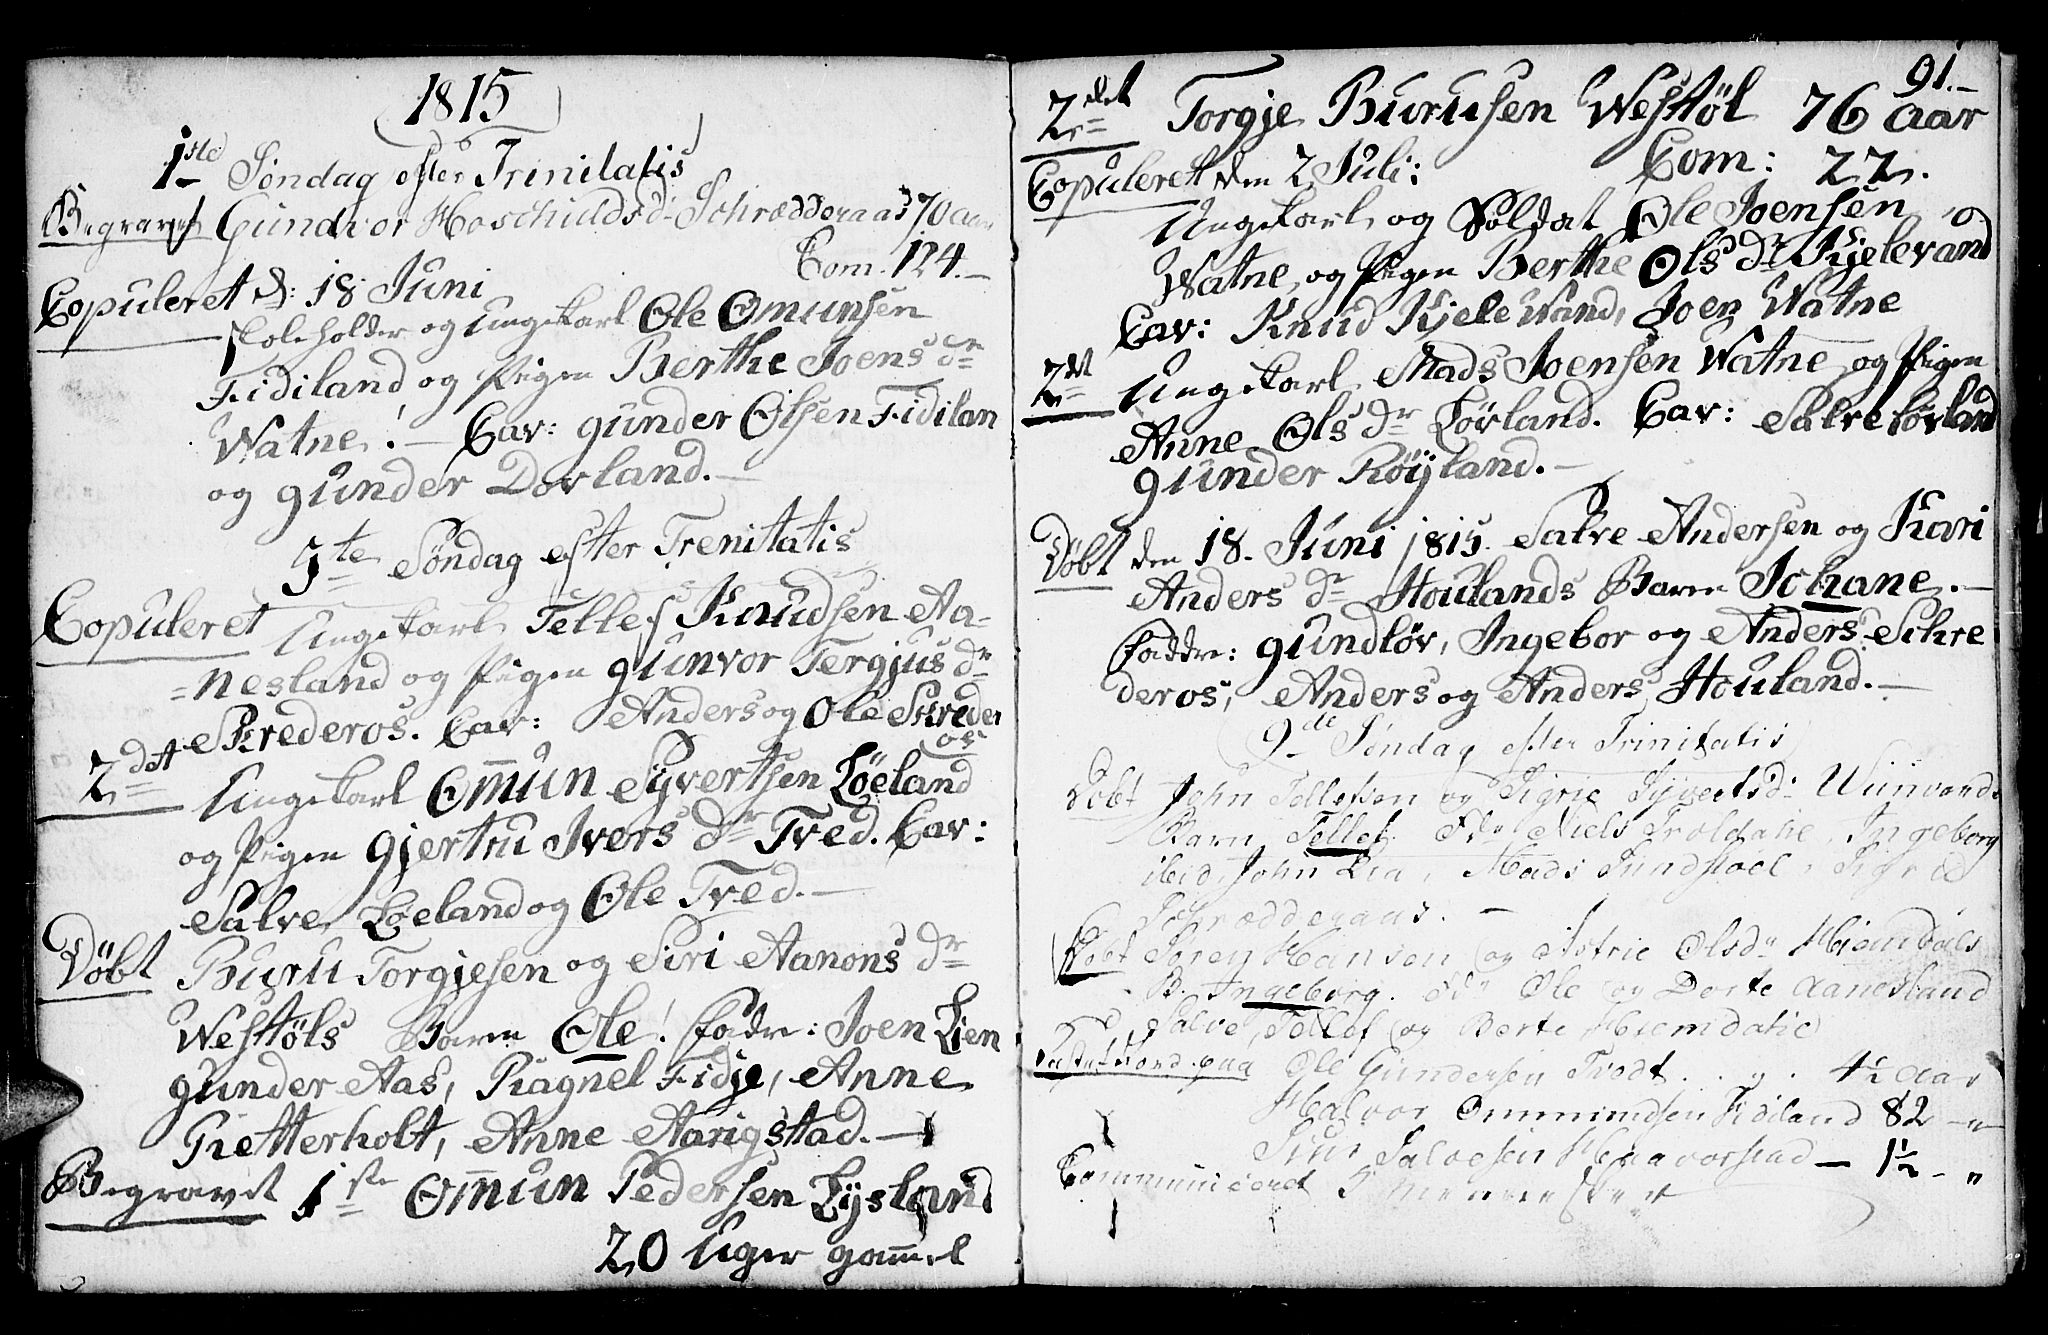 1815
1ste Søndag efter Trinitatis
Begravet Gundvor Hoschuldsd: Schrædderaas 70 aar
Com. 124.-
Copuleret d: 18 Juni
skoleholder og Ungekarl Ole Omunsen
Fidiland og Pigen Berthe Joens dr
Watne! - Cav: gunder Olsen Fidilan
og gunder Dovland.-
3te Søndag efter Trenitatis
Copuleret Ungekarl Tellef Knudsen Aa-
=nesland og Pigen gunvor Tergjus dr
Skrederos. Cav: Anders og Ole Skreder
os
2det Ungekarl Omun Syvertsen Løeland
og Pigen gjertru Ivers dr Tved. Cav:
Salve Løeland og Ole Tved.-
Døbt Buru Torgjesen og Siri Aanons dr
Westøls Barn Ole! Fadr: Joen Lien
gunder Aas, Ragnel Fidje, Anne
Retterholt, Anne Aarigstad.-
Begravet 1ste Omun Pedersen Lysland
20 Uger gammel
91.-
2det Torgje Burusen Westøl 76 aar
Com: 22.
Copuleret den 2 Juli:
Ungekarl og Soldat Ole Joensen
Watne, og Pigen Berthe Ols dr Kjelevand
Cav: Knud Kjele Wand, Joen Watne
2det Ungekarl Mads Joensen Watne og Pigen
Anne Ols dr Løvland. Cav: Salve Løvland
gunder Røyland.-
Døbt den 18. Juni 1815. Salve Andersen og Kari
Anders dr Houlands Barn Johane.-
Faddr: gundløv, Ingebor og Anders Schre
deros, Anders og Anders Houland.-
9de Søndag efter Trinitatis
Døbt John Tellefsen og Sigrie Syvertsd:
Barn Tellef. Fdr Niels Troldalie, Ingeborg
ibid, John Lia, Mads Sundstoel, Sigrid
Schrædderaas.-
Døbt Søren Hansen og Astrie Olsdr
B. Ingeborg. Fdr Ole og Dorte Aanesland
Salve, Tellef og Berte
Jordpaa Ole Gundersen Tvedt . . 4½ aar
Halvor Ommundsen Fidiland 82 - "
Salvesen - 1½ - "
Communiceret